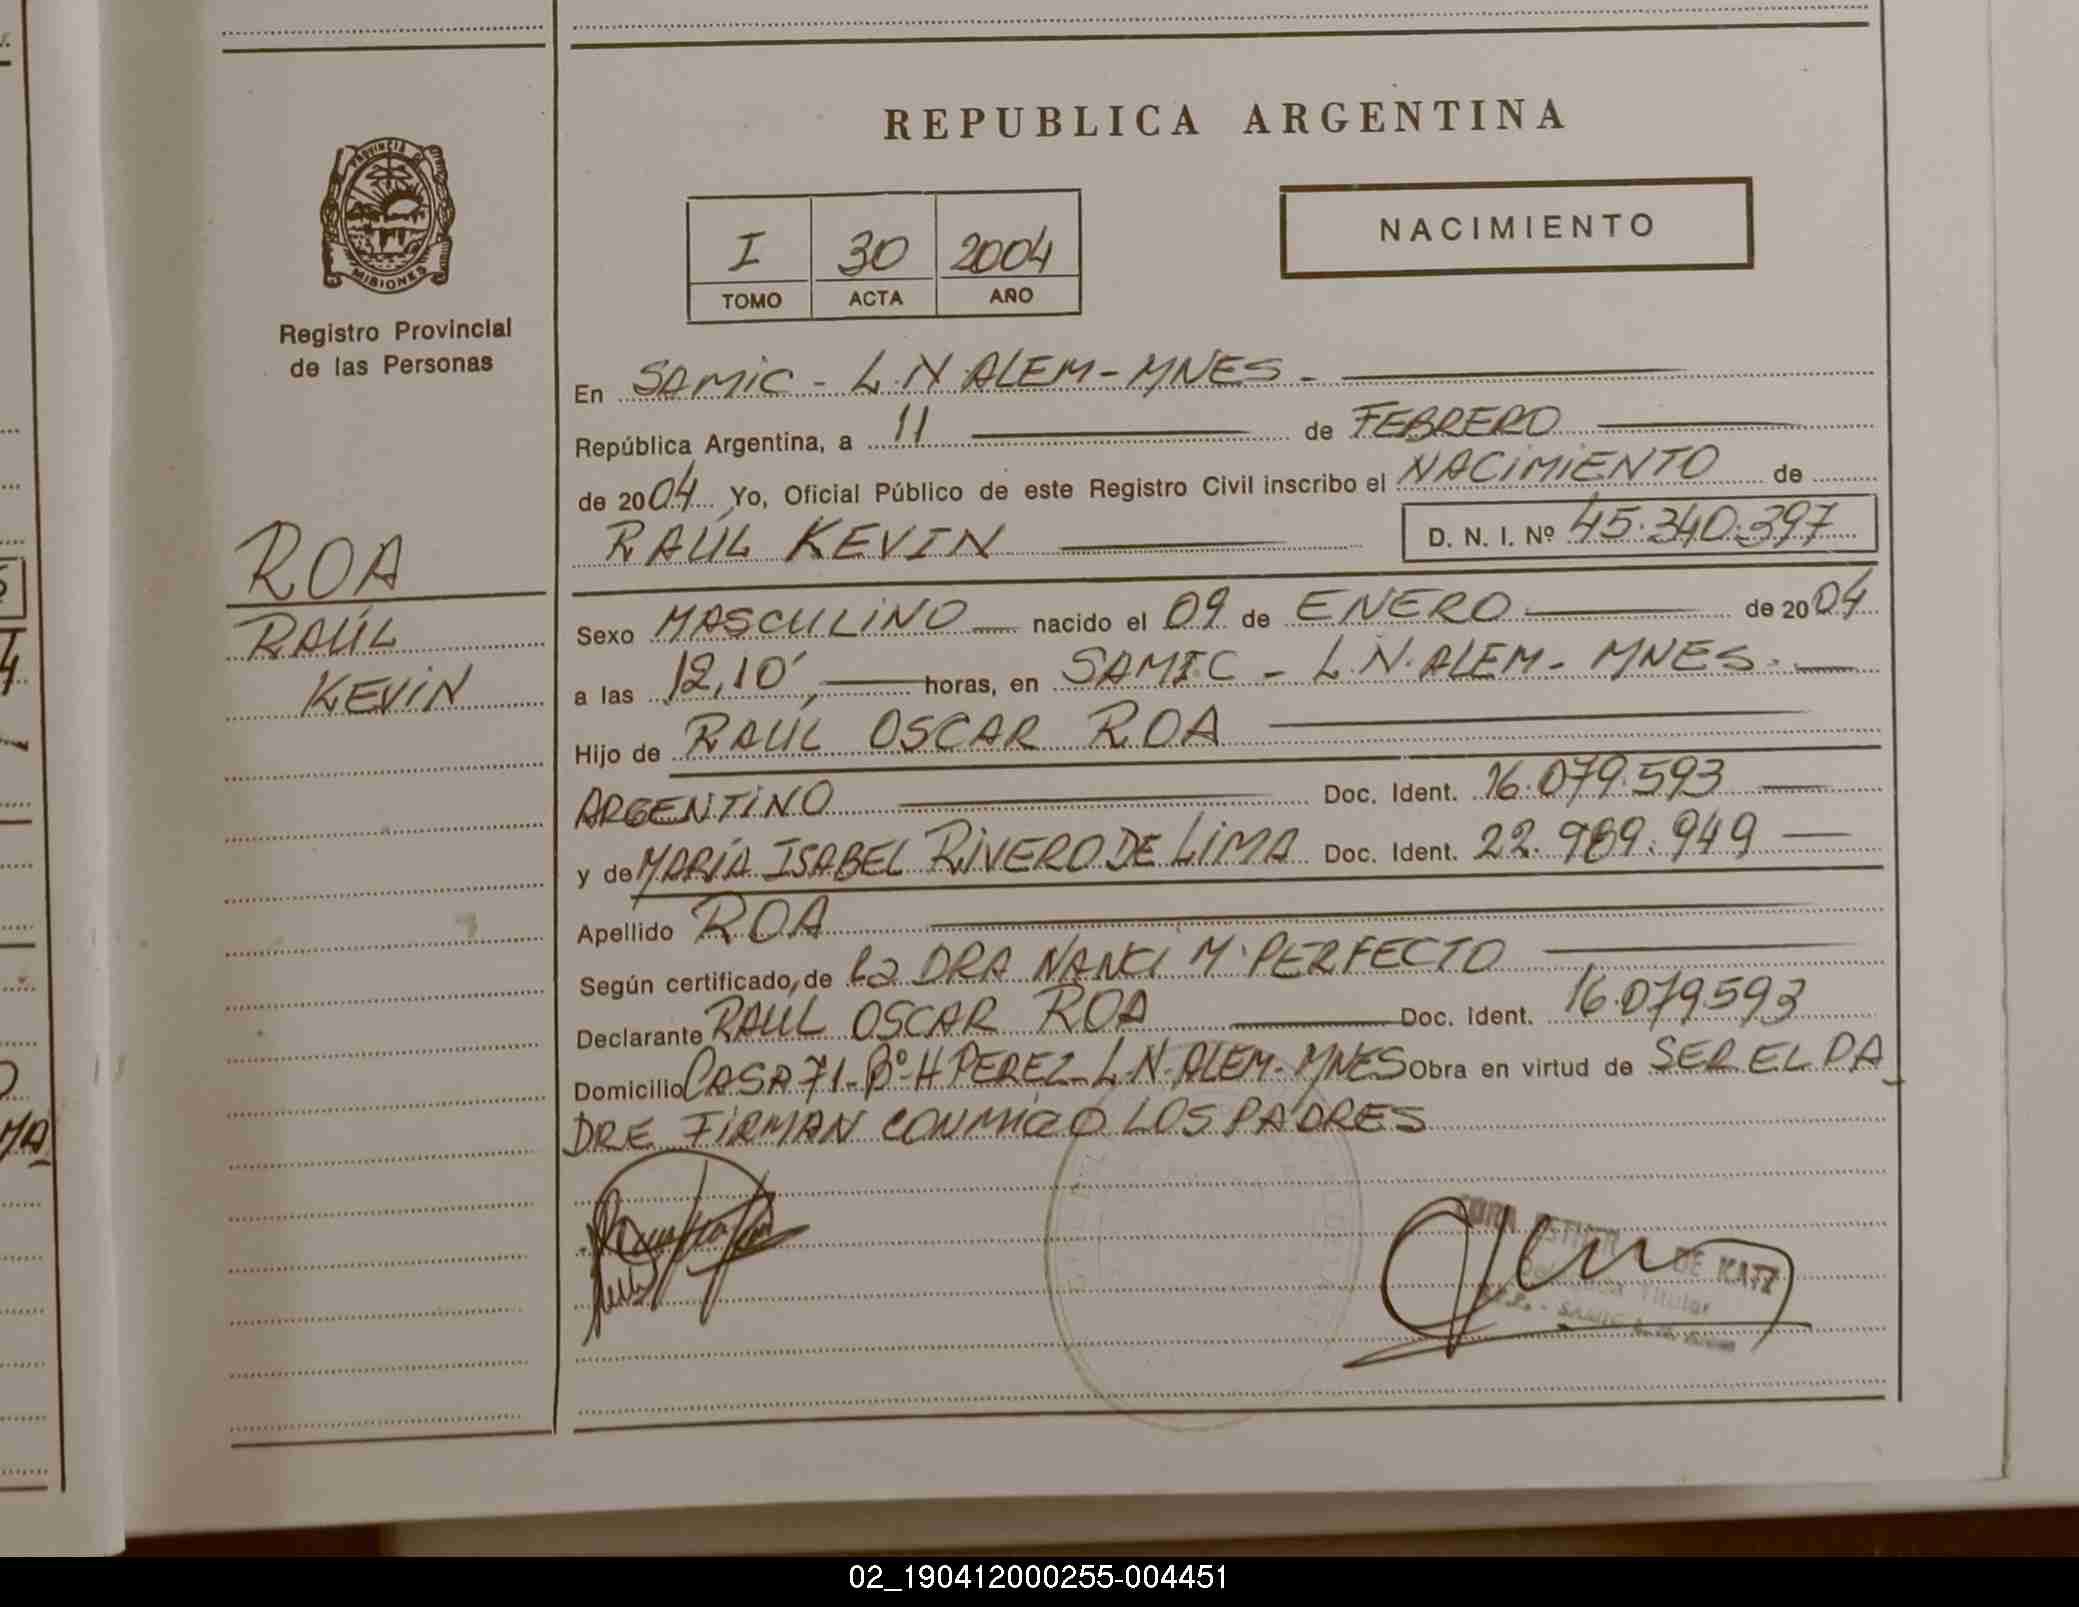 REPUBLICA ARGENTINA
PROVINCIA DE MISIONES
Registro Provincial
de las Personas
I 30 2004
TOMO ACTA AÑO
NACIMIENTO
ROA
RAÚL
KEVIN
En SAMIC - L.N ALEM - MNES -
República Argentina, a 11 de FEBRERO
de 2004 Yo, Oficial Público de este Registro Civil inscribo el NACIMIENTO de
RAÚL KEVIN D. N. I. Nº 45.340.397
Sexo MASCULINO nacido el 09 de ENERO de 2004
a las 12,10', horas, en SAMIC - L.N. ALEM - MNES -
Hijo de RAÚL OSCAR ROA
ARGENTINO Doc. Ident. 16.079.593
y de MARÍA ISABEL RIVERO DE LIMA Doc. Ident. 22.989.949
Apellido ROA
Según certificado, de la DRA NANCI M. PERFECTO
Declarante RAÚL OSCAR ROA Doc. Ident. 16.079593
Domicilio CASA 71 - Bº H PEREZ - L.N. ALEM - MNES Obra en virtud de SER EL PA_
DRE FIRMAN CONMIGO LOS PADRES
DE KATZ
Titular
02_190412000255-004451